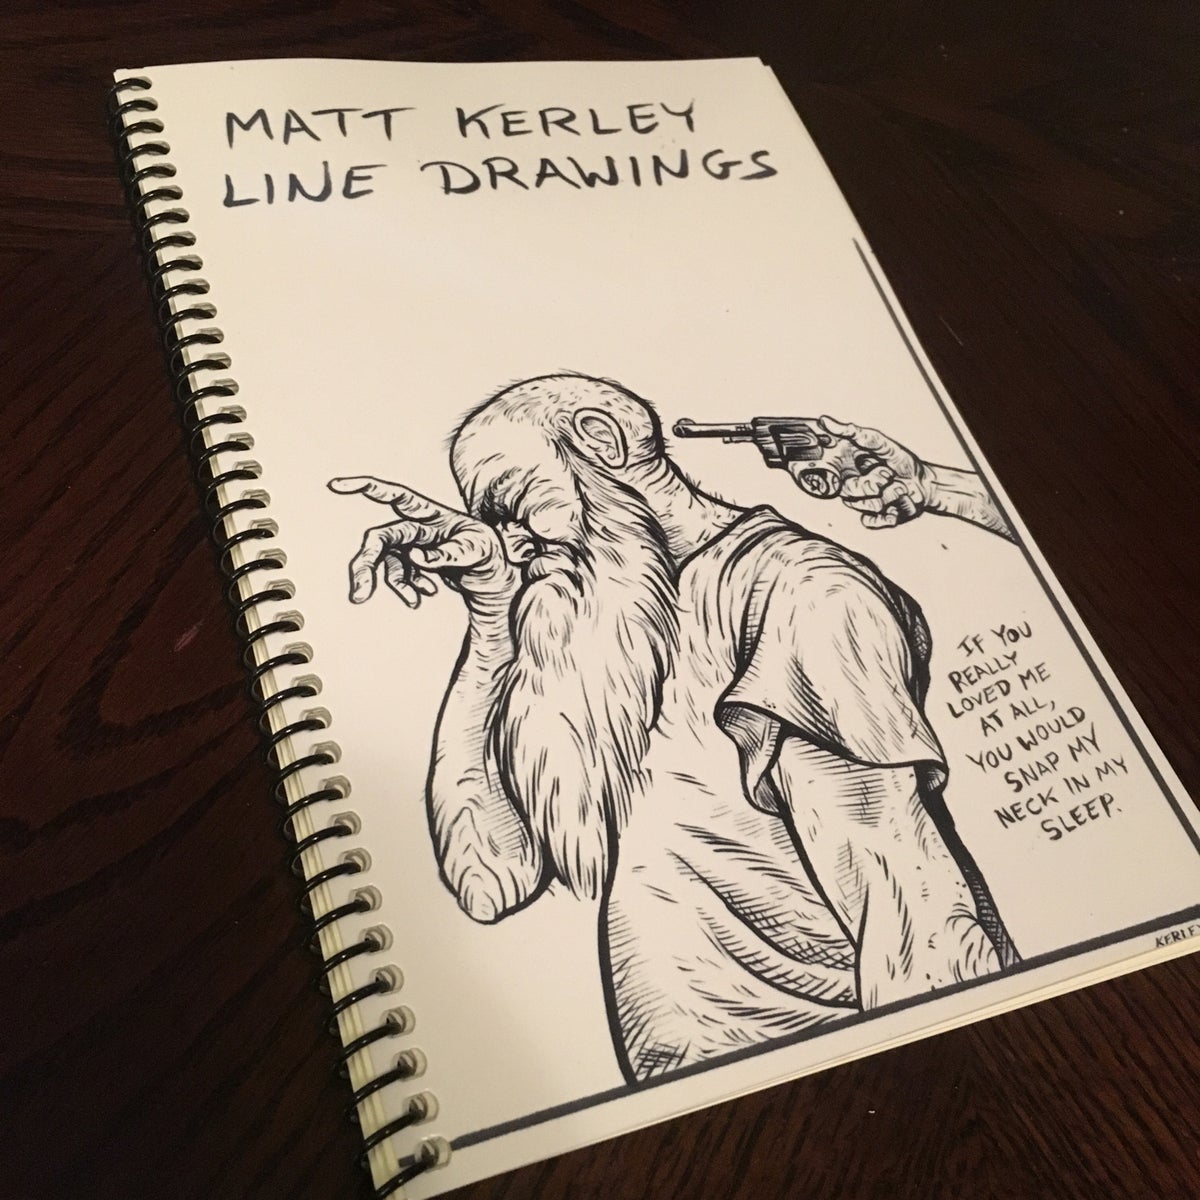 MATT KERLEY
LINE DRAWINGS
IF YOU
REALLY
LOVED ME
AT ALL,
YOU WOULD
SNAP MY
NECK IN MY
SLEEP.
KERLEY